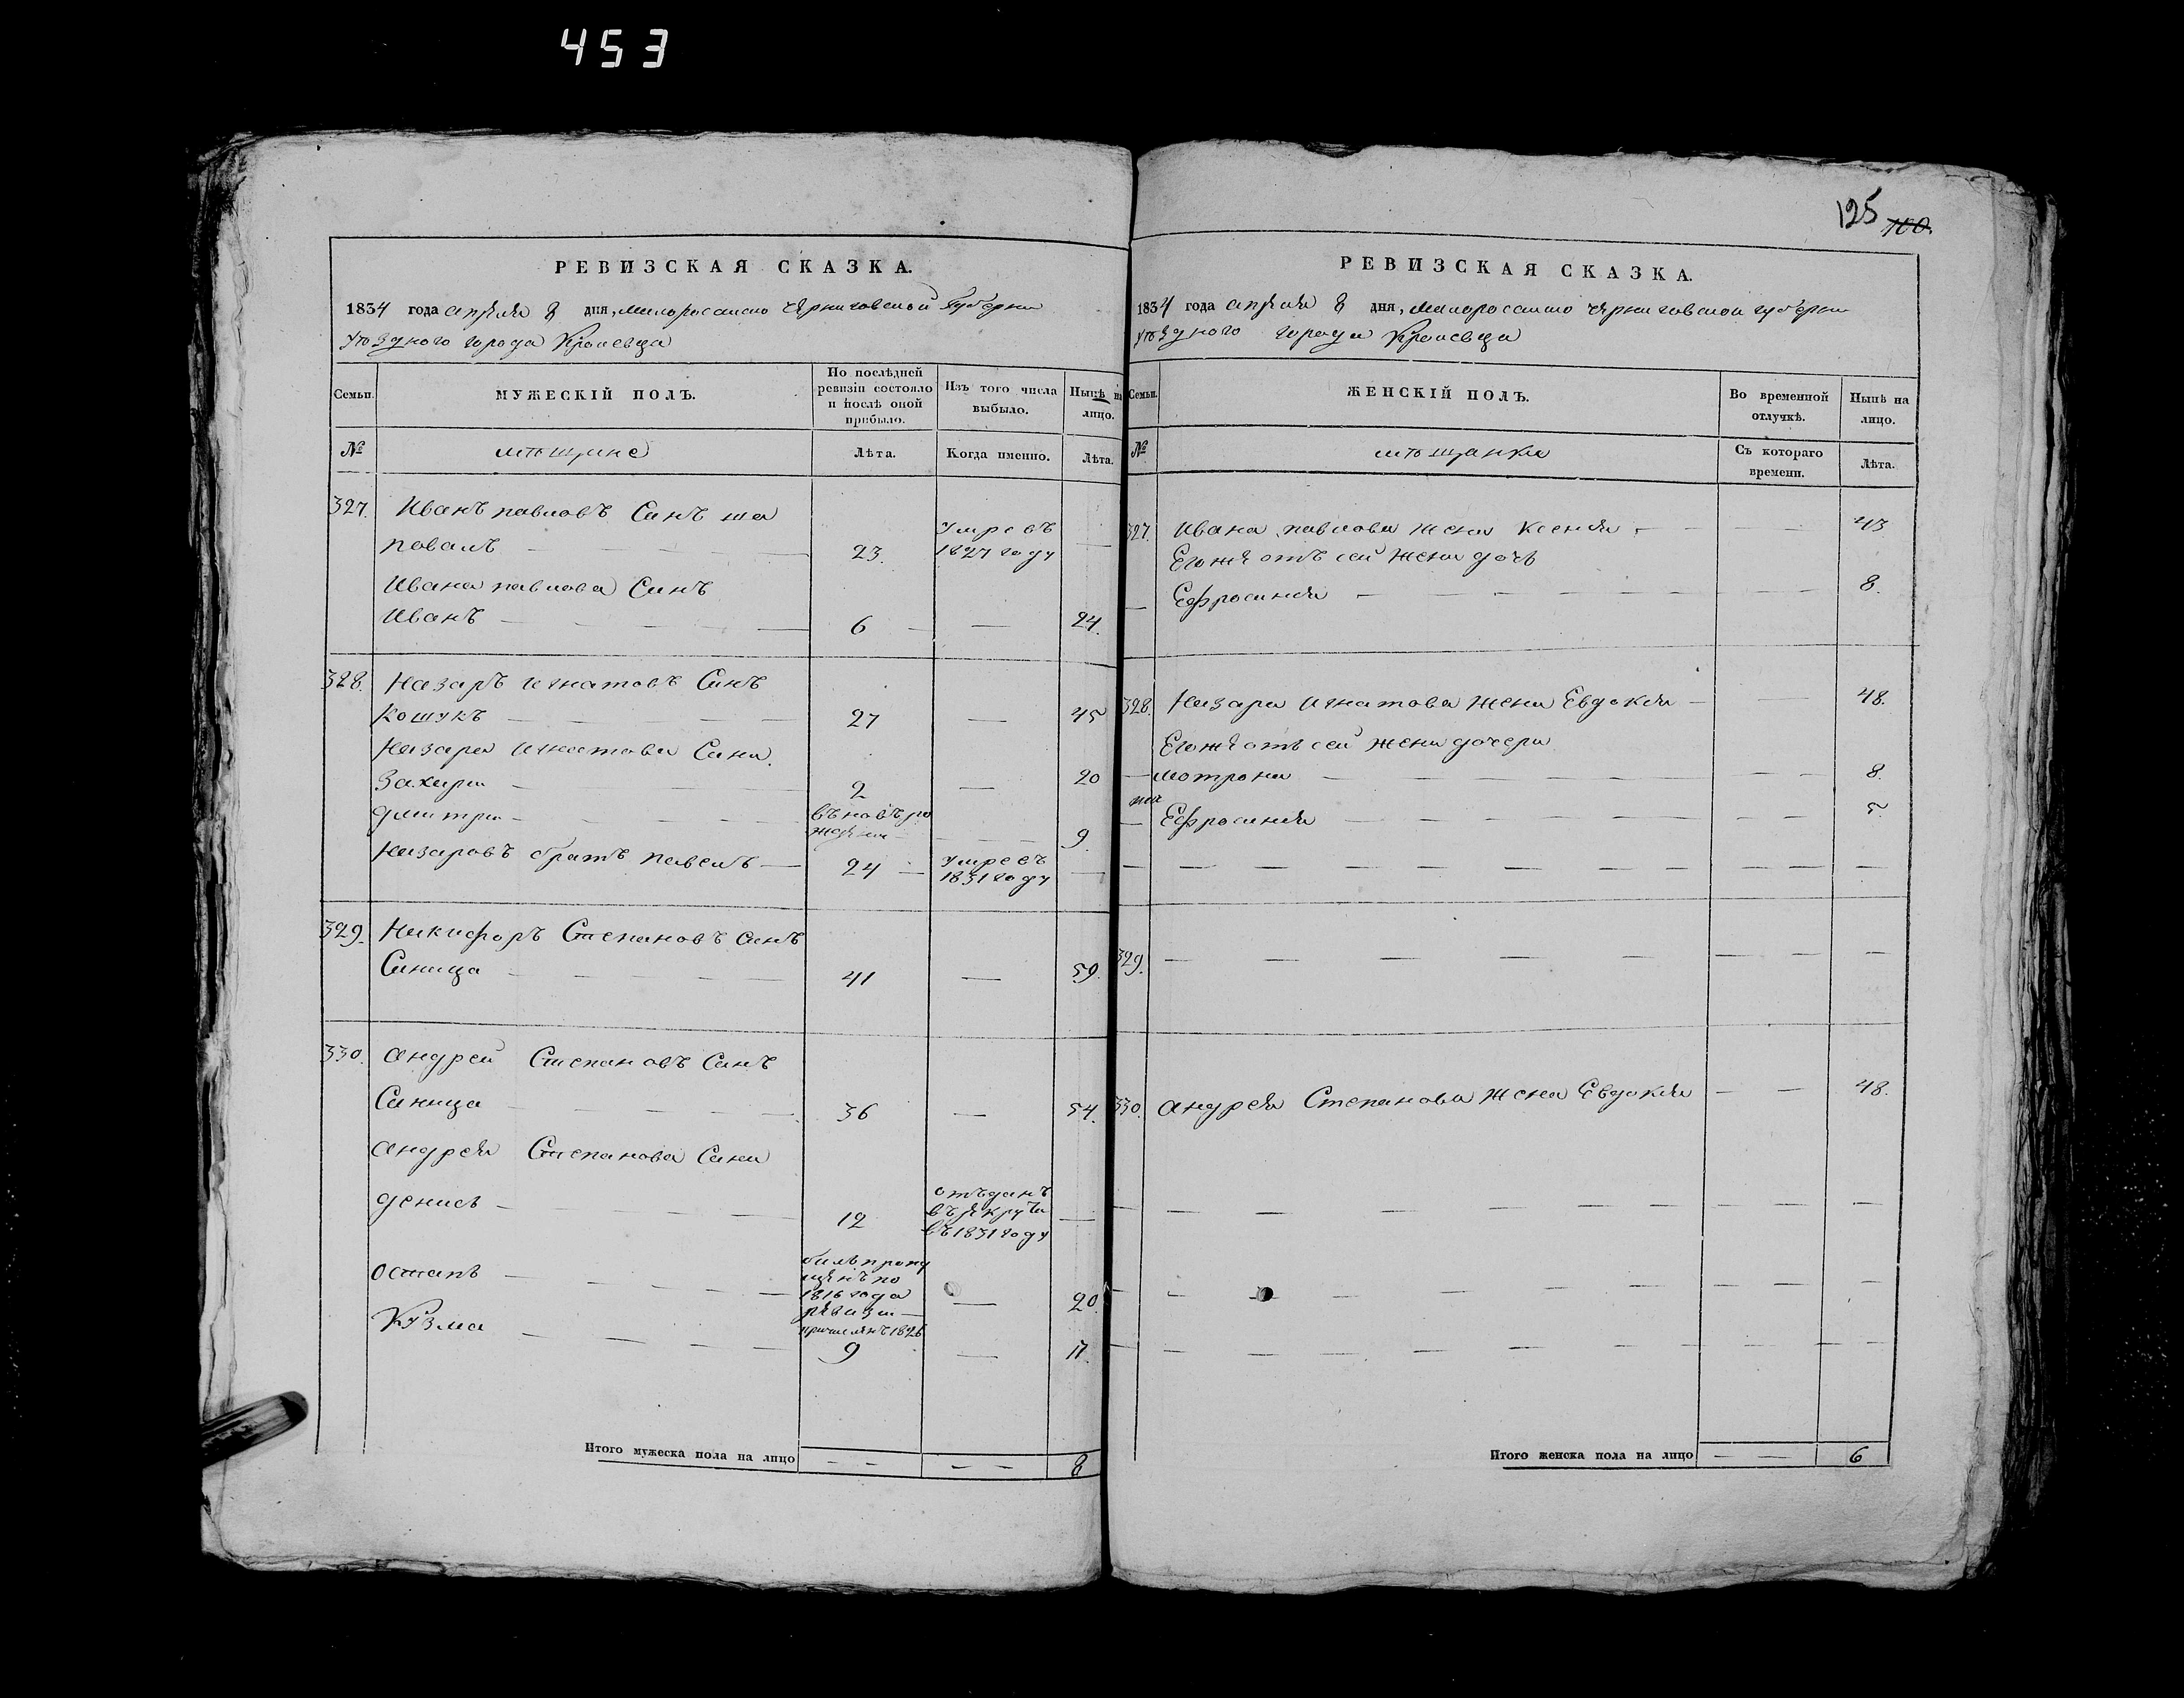 453
125 100.
РЕВИЗСКАЯ СКАЗКА.
1834 года апреля 8 дня, малоросииско черниговской Губерни
уѣздного города Кролевца
Семьи.
МУЖЕСКІЙ ПОЛЪ.
По послѣдней ревизіи состояло и послѣ оной прибыло.
Изъ того числа выбыло.
Нынѣ на лицо.
№
мѣщане
Лѣта.
Когда именно.
Лѣта.
327. Иванъ павловъ Синъ ша
повалъ 23. умре въ 1827 году
Ивана павлова Синъ
Иванъ 6 24.
328. Назаръ игнатовъ Синъ
Кошукъ 27 45
Назара игнатова Сини.
Захари 2 20
дмитри въновъ рожденъ 9.
Назаровъ братъ павелъ 24 умре въ 1831 году
329. Никифоръ Степановъ синъ
Синица 41 59.
330. андрей Степановъ Синъ
Синица 36 54.
андрея Степанова Сини
денисъ 12 отъданъ въ рекрути въ 1831 году
остапъ билъ пропущенъ по 1816 года ревизи причисленъ 1826 20.
Кузма 9 17.
Итого мужеска пола на лицо 8
РЕВИЗСКАЯ СКАЗКА.
1834 года апреля 8 дня, малоросииско черниговской губерни
уѣздного города Кролевца
Семьи.
ЖЕНСКІЙ ПОЛЪ.
Во временной отлучкѣ.
Нынѣ на лицо.
№
мѣщанки
Съ котораго времени.
Лѣта.
327. Ивана павлова жена Ксения 43
Егоже отъ сей жени дочь
Ефросиния 8.
328. Назара игнатова жена Евдокия 48.
Егоже отъ сей жени дочери
мотрона 8.
Ефросиния 5
329.
330. андрея Степанова жена Евдокия 48.
Итого женска пола на лицо 6